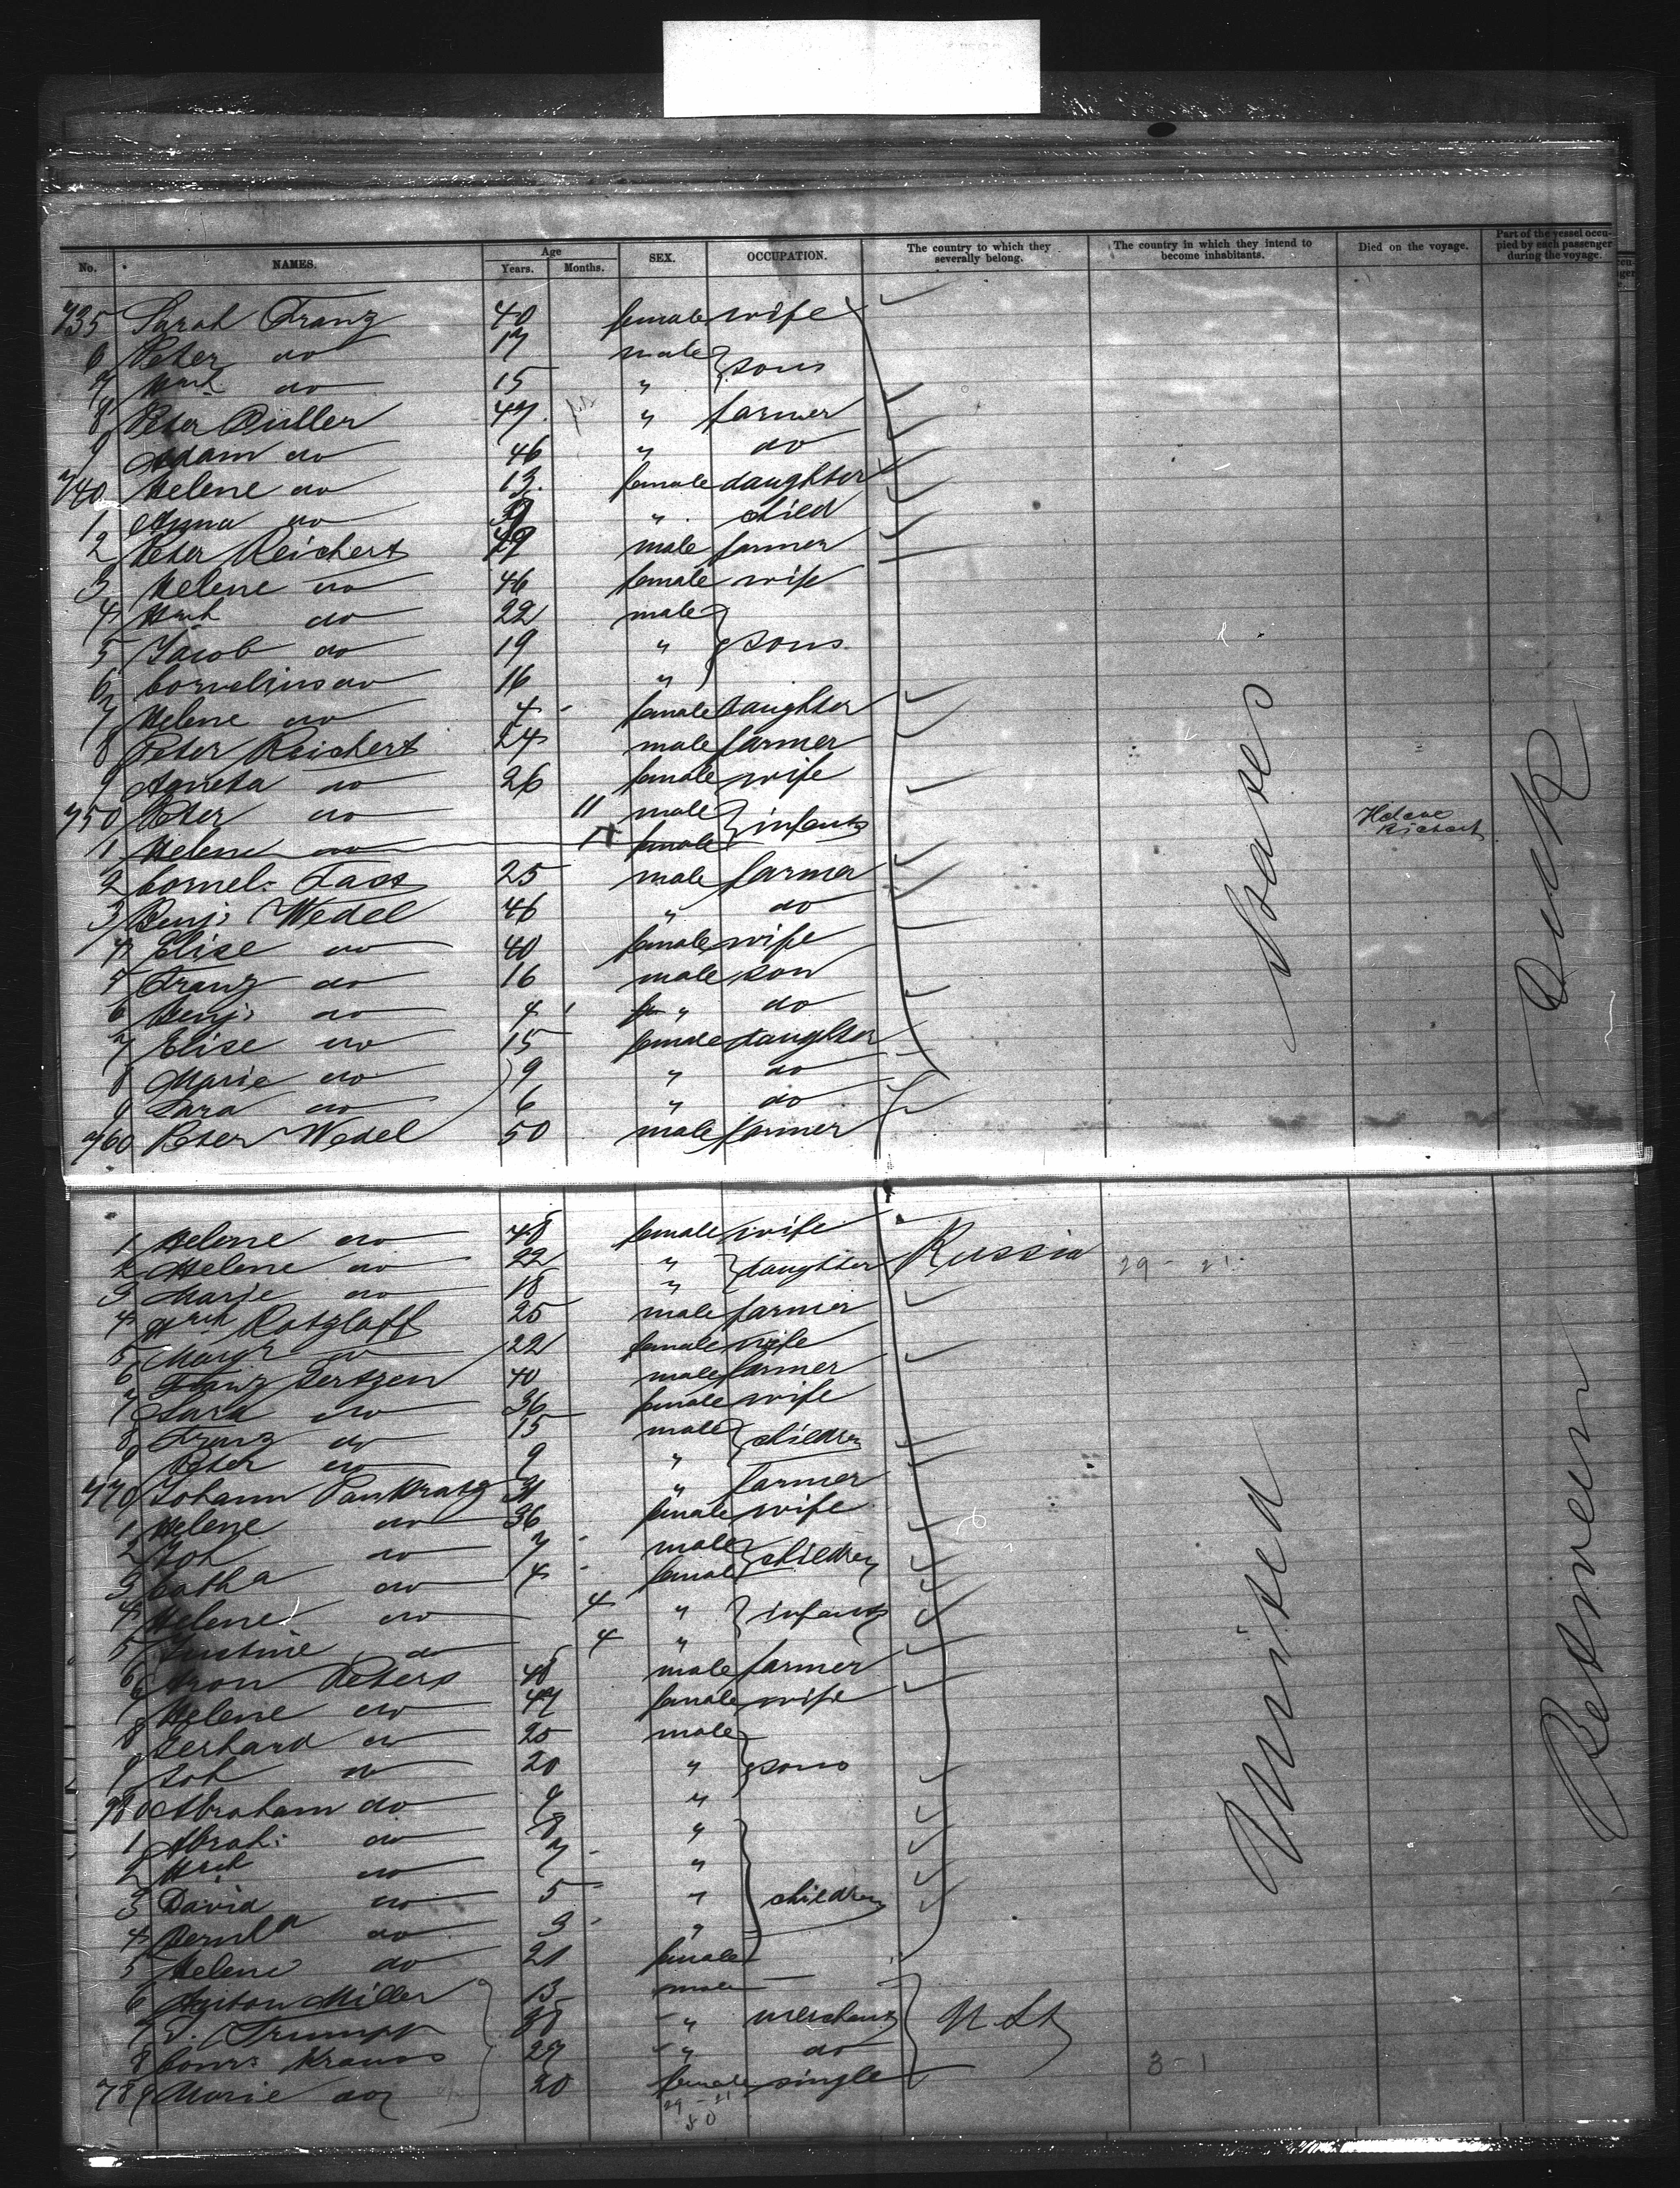 No. NAMES. Age Years. Months. SEX. OCCUPATION. The country to which they severally belong. The country in which they intend to become inhabitants. Died on the voyage. Part of the vessel occupied by each passenger during the voyage.
735 Sarah Franz 40 female wife
6 Peter do 17 male } sons
7 Hrch do 15 "
8 Peter Buller 47 " farmer
9 Adam do 46 " do
740 Helene do 13 female daughter
1 Anna do " child
2 Peter Reichert 49 male farmer
3 Helene do 46 female wife
4 Hrch do 22 male } sons
5 Jacob do 19 "
6 Cornelius do 16 "
7 Helene do 4 female daughter
8 Peter Reichert 24 male farmer
9 Agneta do 26 female wife
750 Peter do 11 male } infants
1 Helene do female Helene Richert
2 Cornel. Fass 25 male farmer
3 Benj. Wedel 46 " do
4 Elise do 40 female wife
5 Franz do 16 male son
6 Benj. do 4 " do
7 Elise do 15 female daughter
8 Marie do 9 " do
9 Sara do 6 " do
760 Peter Wedel 50 male farmer
1 Helene do 48 female wife
2 Helene do 22 " } daughter Russia 29 - 21
3 Marie do 18 "
4 Hrch Ratzlaff 25 male farmer
5 Margr do 22 female wife
6 Franz Jertzen 40 male farmer
7 Sara do 36 female wife
8 Franz do 15 male } children
9 Peter do 9 "
770 Johann Pankratz 31 " farmer
1 Helene do 36 female wife
2 Joh do 7 male } children
3 Catha do 4 female
4 Helene do 4 " } infants
5 Justine do 4 "
6 Aron Peters 48 male farmer
7 Helene do 47 female wife
8 Gerhard do 25 male } sons
9 Joh do 20 "
780 Abraham do 9 "
1 Abrah: do 8 "
2 Hrch do 7 "
3 David do 5 " children
4 Bernhd do 3 "
5 Helene do 21 female
6 Anton Miller 13 male
7 J. Trumpf 38 " merchant U. St
8 Conr: Krauss 27 " do 3 - 1
789 Marie do 20 female single
29 - 21
United States
Between Deck